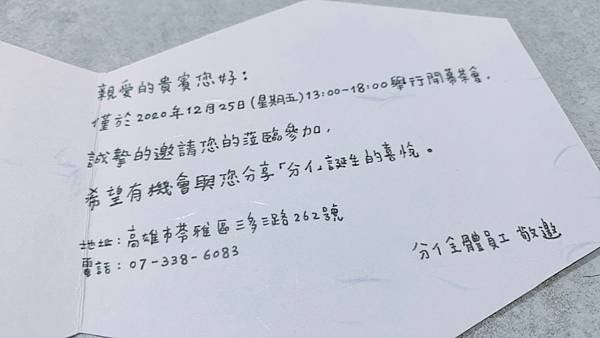 親愛的貴賓您好：
僅於2020年12月25日(星期五)13:00-18:00舉行開幕茶會，
誠摯的邀請您的蒞臨參加，
希望有機會與您分享「分亻」誕生的喜悅。
地址：高雄市苓雅區三多三路262號
電話：07-338-6083
分亻全體員工 敬邀